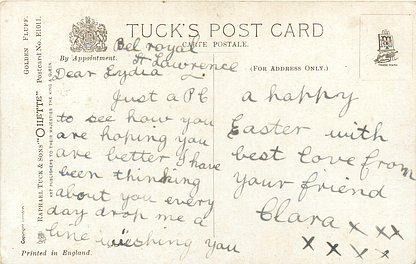 TUCK'S POST CARD
CARTE POSTALE.
By Appointment.
(FOR ADDRESS ONLY.)
Bel royal
St Lawrence
Dear Lydia
Just a PC
to see how you
are hoping you
are better I have
been thinking
about you every
day drop me a
line wishing you
a happy
Easter with
best love from
your friend
Clara x x x
x x x x
GOLDEN FLUFF.
Postcard No. E1011.
RAPHAEL TUCK & SONS' "OILETTE"
ART PUBLISHERS TO THEIR MAJESTIES THE KING & QUEEN
Copyright
Printed in England.